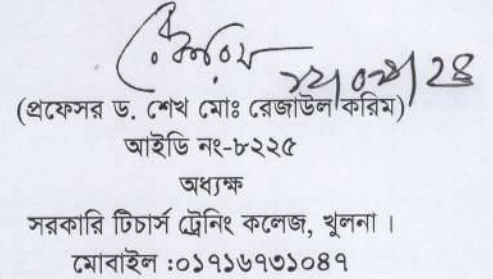 (প্রফেসর ড. শেখ মোঃ রেজাউল করিম)
আইডি নং-৮২২৫
অধ্যক্ষ
সরকারি টিচার্স ট্রেনিং কলেজ, খুলনা ।
মোবাইল :০১৭১৬৭৩১০৪৭